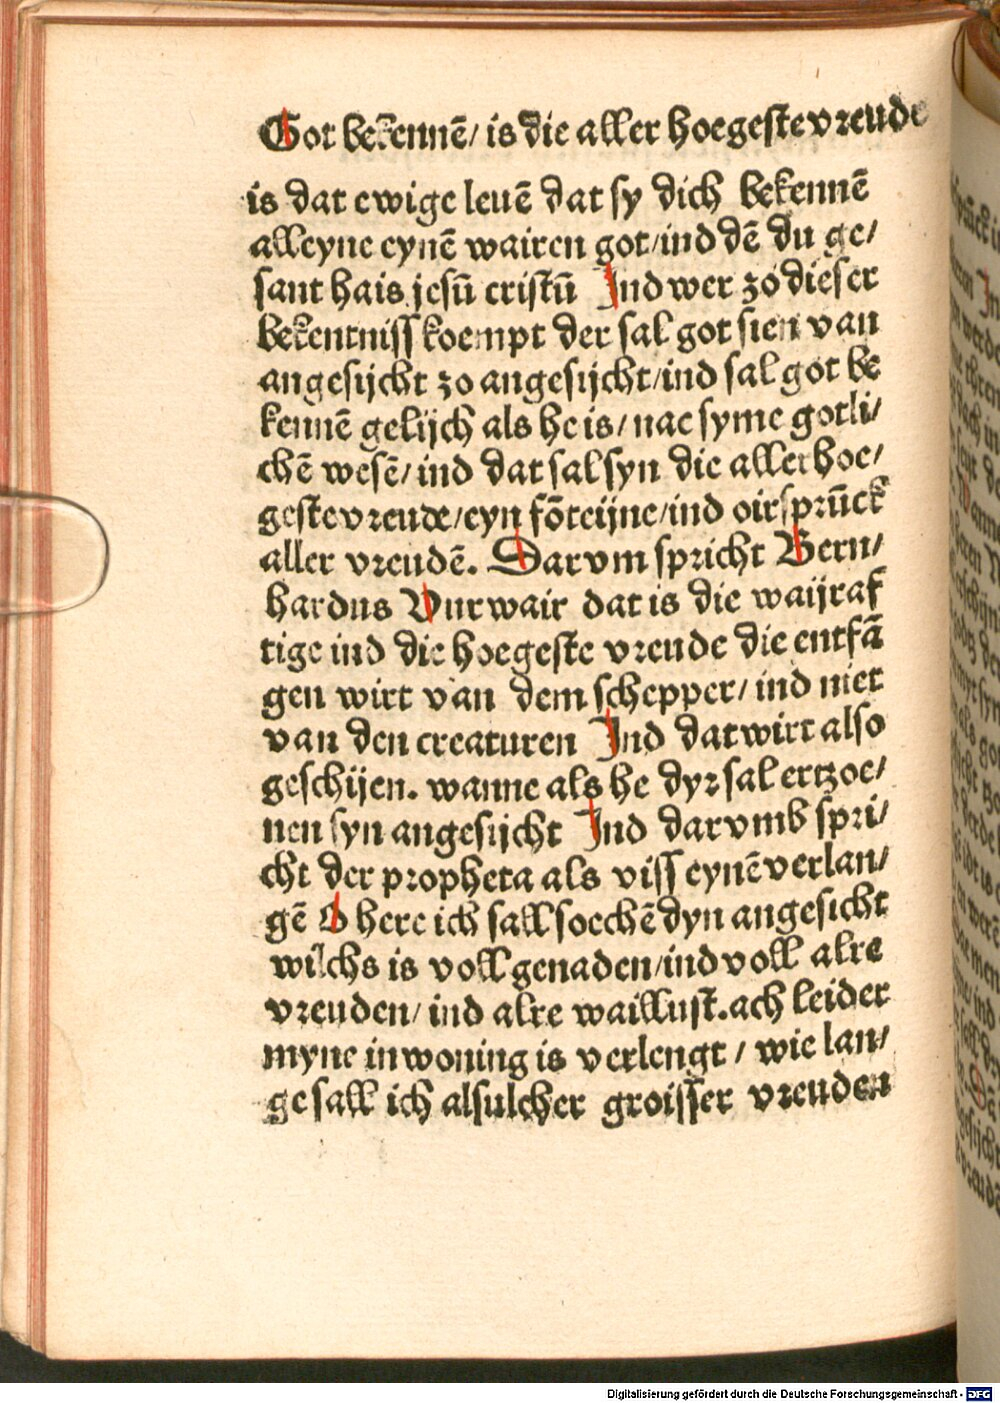 Got bekennē/ is die aller hoegeste vreude
is dat ewige leuē dat sy dich bekennē
alleyne eynē wairen got/ind dē du ge/
sant hais jesū cristū Ind wer zo dieser
bekentniss koempt der sal got sien van
angesijcht zo angesijcht/ind sal got be
kennē gelijch als he is/ nae syme gotli/
chē wesē/ ind dat sal syn die aller hoe/
geste vreude/eyn fōteijne/ind oirsprūck
aller vreudē. Darvm spricht Bern/
hardus Vurwair dat is die waijraf
tige ind die hoegeste vreude die entfā
gen wirt van dem schepper/ ind niet
van den creaturen Ind dat wirt also
geschijen. wanne als he dyr sal ertzoe/
nen syn angesijcht Ind darvmb spri/
cht der propheta als viss eynē verlan/
gē O here ich sall soechē dyn angesicht
wilchs is voll genaden/ind voll alre
vreuden/ ind alre waillust.ach leider
myne inwoning is verlengt / wie lan/
ge sall ich alsulcher groisser vreuden
Digitalisierung gefördert durch die Deutsche Forschungsgemeinschaft - DFG